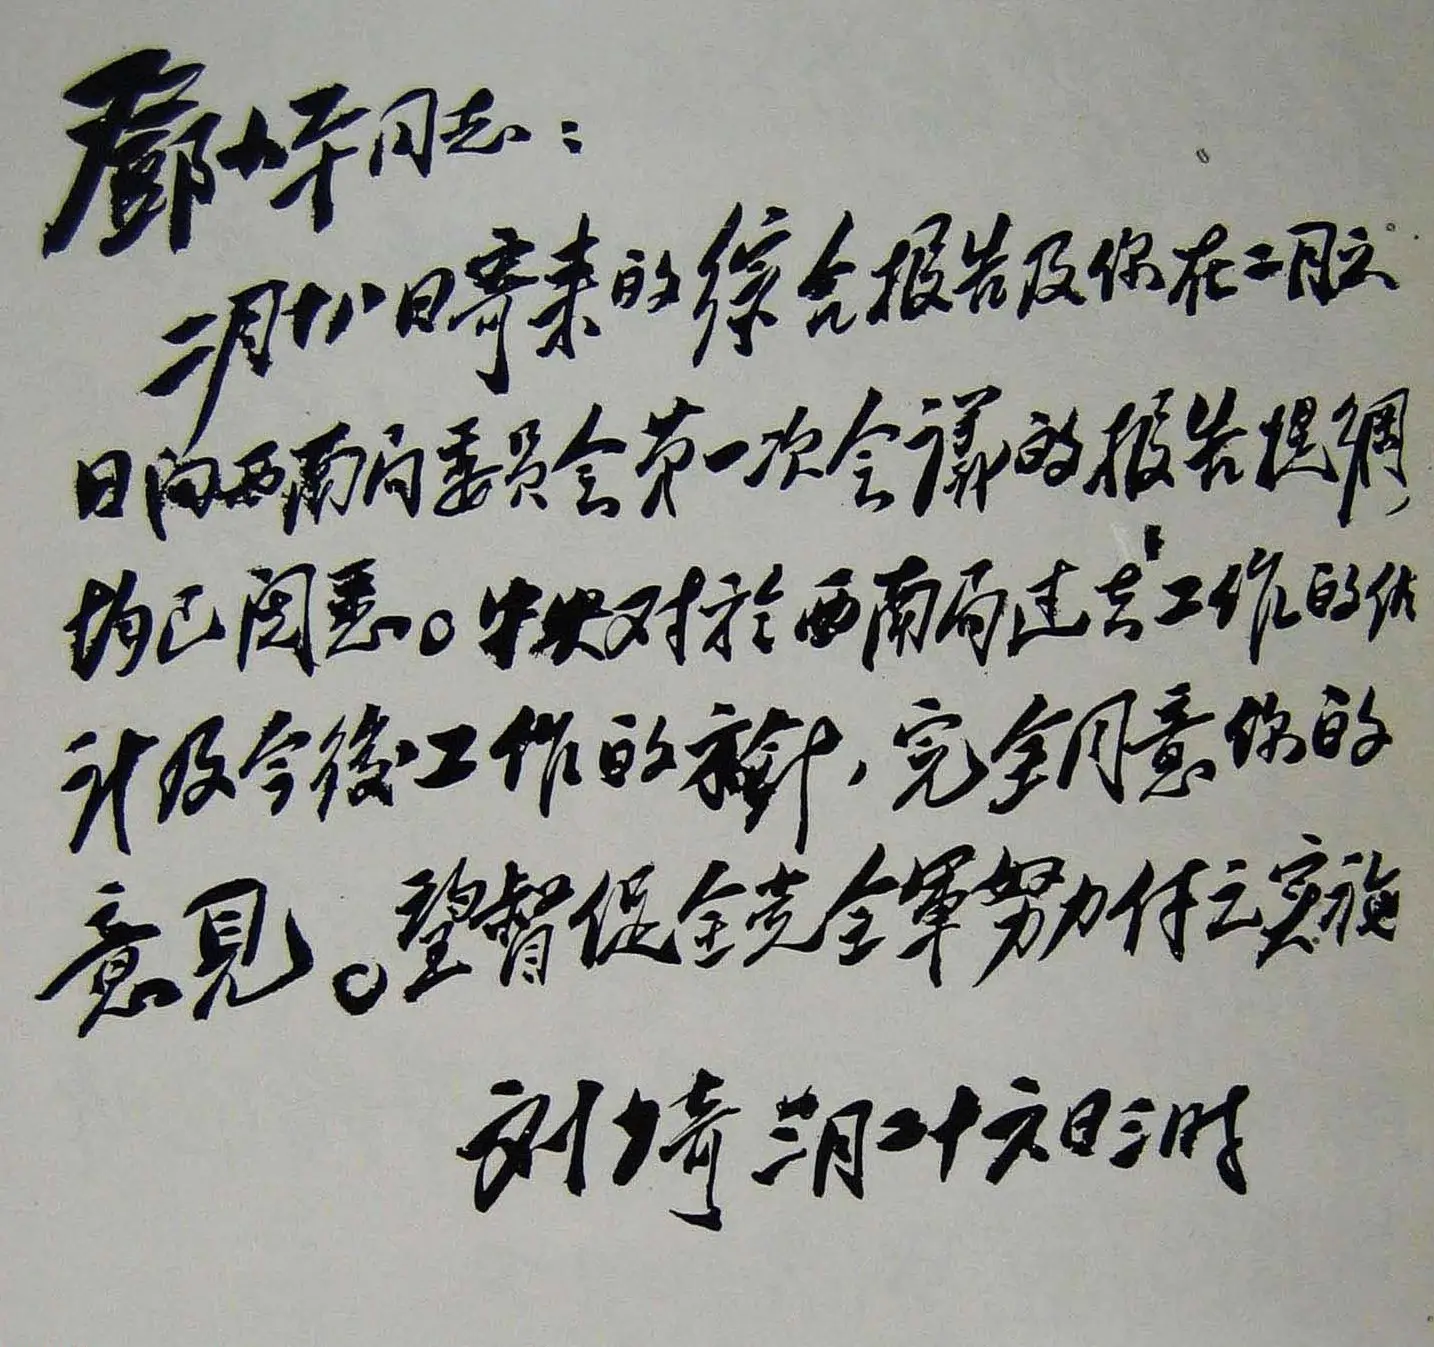 鄧小平同志：
二月十八日寄来的综合报告及你在二月六
日向西南局委员会第一次会議的报告提綱，
均已阅悉。中央对於西南局过去工作的估
计及今後工作的方針，完全同意你的
意見。望督促全党全軍努力付之实施
刘少奇 二月二十六日三时